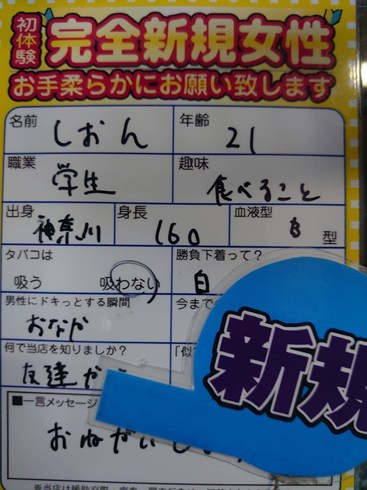 初体験
完全新規女性
お手柔らかにお願い致します
名前 しおん 年齢 21
職業 学生 趣味 食べること
出身 神奈川 身長 160 血液型 B 型
タバコは 吸う 吸わない
勝負下着って? 白
男性にドキっとする瞬間 おなか
今まで
何で当店を知りましたか? 友達か
「似
■一言メッセージ
おねがいし
新規